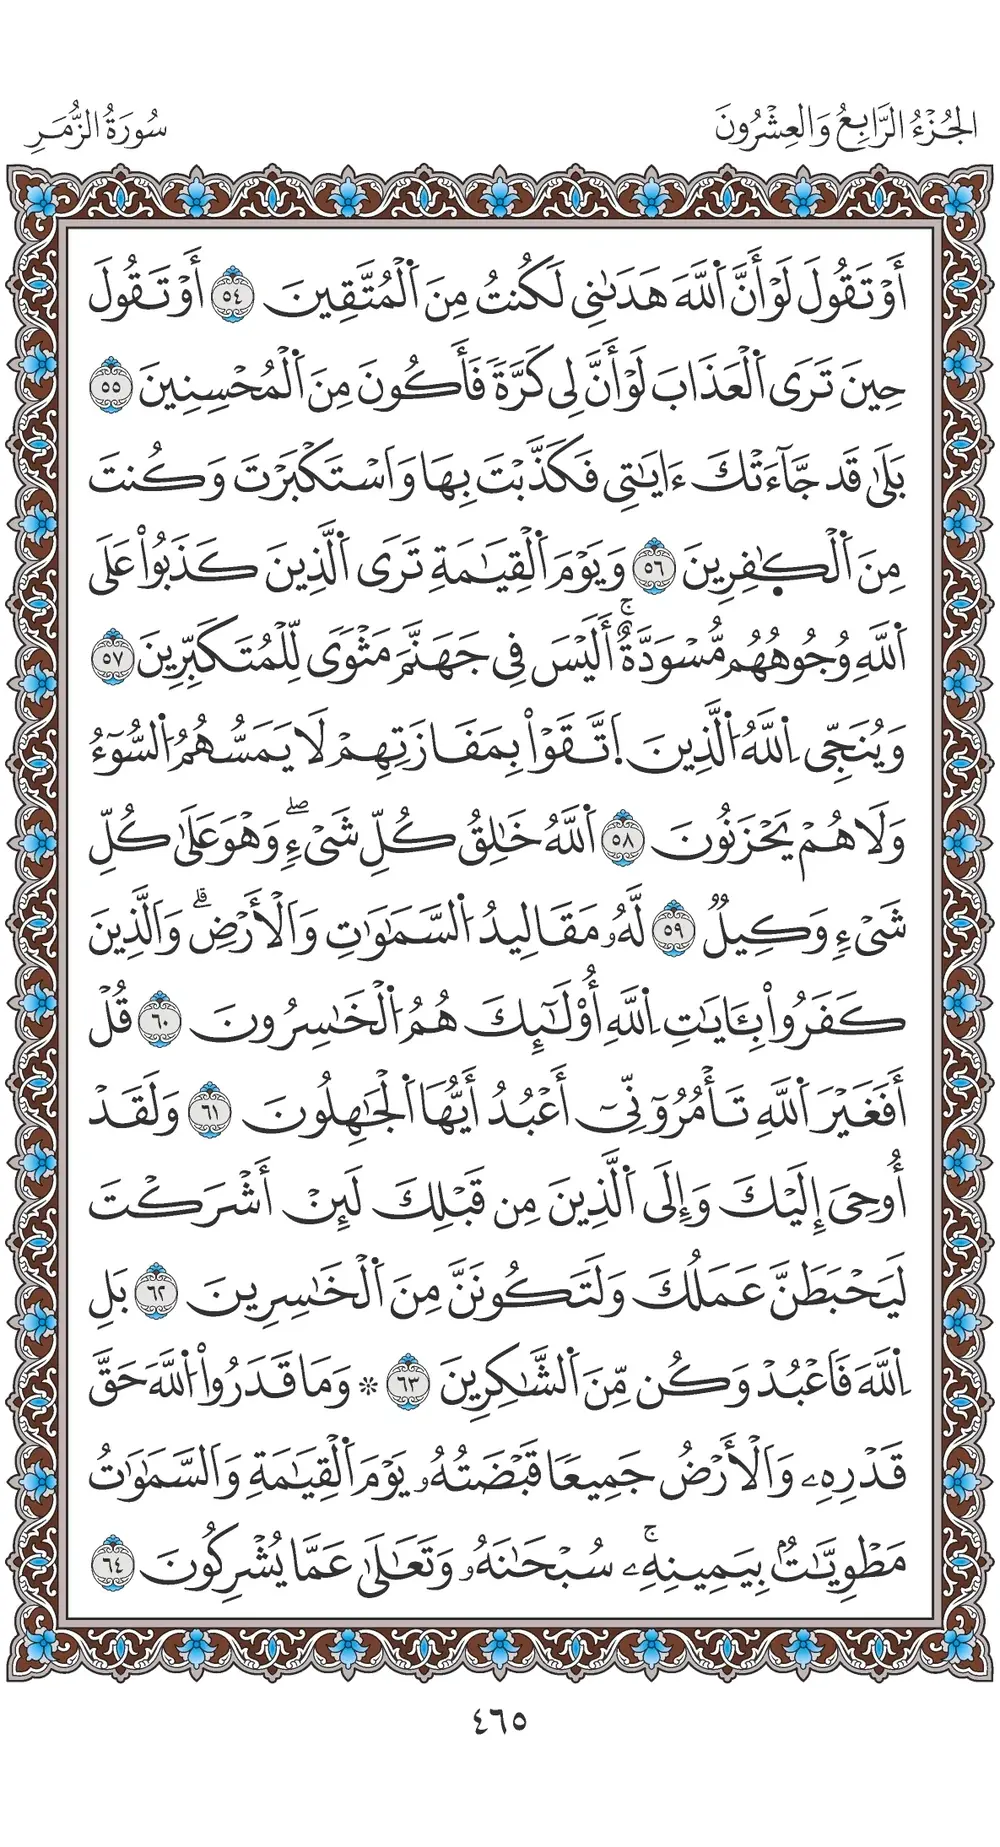 الجُزْءُ الرَّابِعُ وَالعِشْرُونَ
سُورَةُ الزُّمَرِ
أَوْ تَقُولَ لَوْ أَنَّ اَ۬للَّهَ هَدَىٰنِي لَكُنتُ مِنَ اَ۬لْمُتَّقِينَ ٥٤ أَوْ تَقُولَ
حِينَ تَرَى اَ۬لْعَذَابَ لَوْ أَنَّ لِي كَرَّةٗ فَأَكُونَ مِنَ اَ۬لْمُحْسِنِينَ ٥٥
بَلَىٰ قَد جَّآءَتْكَ ءَايَٰتِي فَكَذَّبْتَ بِهَا وَاَسْتَكْبَرْتَ وَكُنتَ
مِنَ اَ۬لْكٰ۪فِرِينَ ٥٦ وَيَوْمَ اَ۬لْقِيَٰمَةِ تَرَى اَ۬لَّذِينَ كَذَبُواْ عَلَى
اَ۬للَّهِ وُجُوهُهُم مُّسْوَدَّةٌۚ أَلَيْسَ فِي جَهَنَّمَ مَثْوٗى لِّلْمُتَكَبِّرِينَ ٥٧
وَيُنَجِّي اِ۬للَّهُ اُ۬لَّذِينَ اَ۪تَّقَوْاْ بِمَفَازَتِهِمْ لَا يَمَسُّهُمُ اُ۬لسُّوٓءُ
وَلَا هُمْ يَحْزَنُونَ ٥٨ اَ۬للَّهُ خَٰلِقُ كُلِّ شَيْءٖۖ وَهْوَ عَلَىٰ كُلِّ
شَيْءٖ وَكِيلٞ ٥٩ لَّهُۥ مَقَالِيدُ اُ۬لسَّمَٰوَٰتِ وَالْأَرْضِۗ وَالَّذِينَ
كَفَرُواْ بِـَٔايَٰتِ اِ۬للَّهِ أُوْلَٰٓئِكَ هُمُ اُ۬لْخَٰسِرُونَ ٦٠ قُلْ
أَفَغَيْرَ اَ۬للَّهِ تَأْمُرُوٓنِّيٓ أَعْبُدُ أَيُّهَا اَ۬لْجَٰهِلُونَ ٦١ وَلَقَدْ
أُوحِيَ إِلَيْكَ وَإِلَى اَ۬لَّذِينَ مِن قَبْلِكَ لَئِنْ أَشْرَكْتَ
لَيَحْبَطَنَّ عَمَلُكَ وَلَتَكُونَنَّ مِنَ اَ۬لْخَٰسِرِينَ ٦٢ بَلِ
اِ۬للَّهَ فَاعْبُدْ وَكُن مِّنَ اَ۬لشَّٰكِرِينَ ٦٣ ۞ وَمَا قَدَرُواْ اُ۬للَّهَ حَقَّ
قَدْرِهِۦ وَالْأَرْضُ جَمِيعٗا قَبْضَتُهُۥ يَوْمَ اَ۬لْقِيَٰمَةِ وَالسَّمَٰوَٰتُ
مَطْوِيَّٰتُۢ بِيَمِينِهِۦۚ سُبْحَٰنَهُۥ وَتَعَٰلَىٰ عَمَّا يُشْرِكُونَ ٦٤
٤٦٥